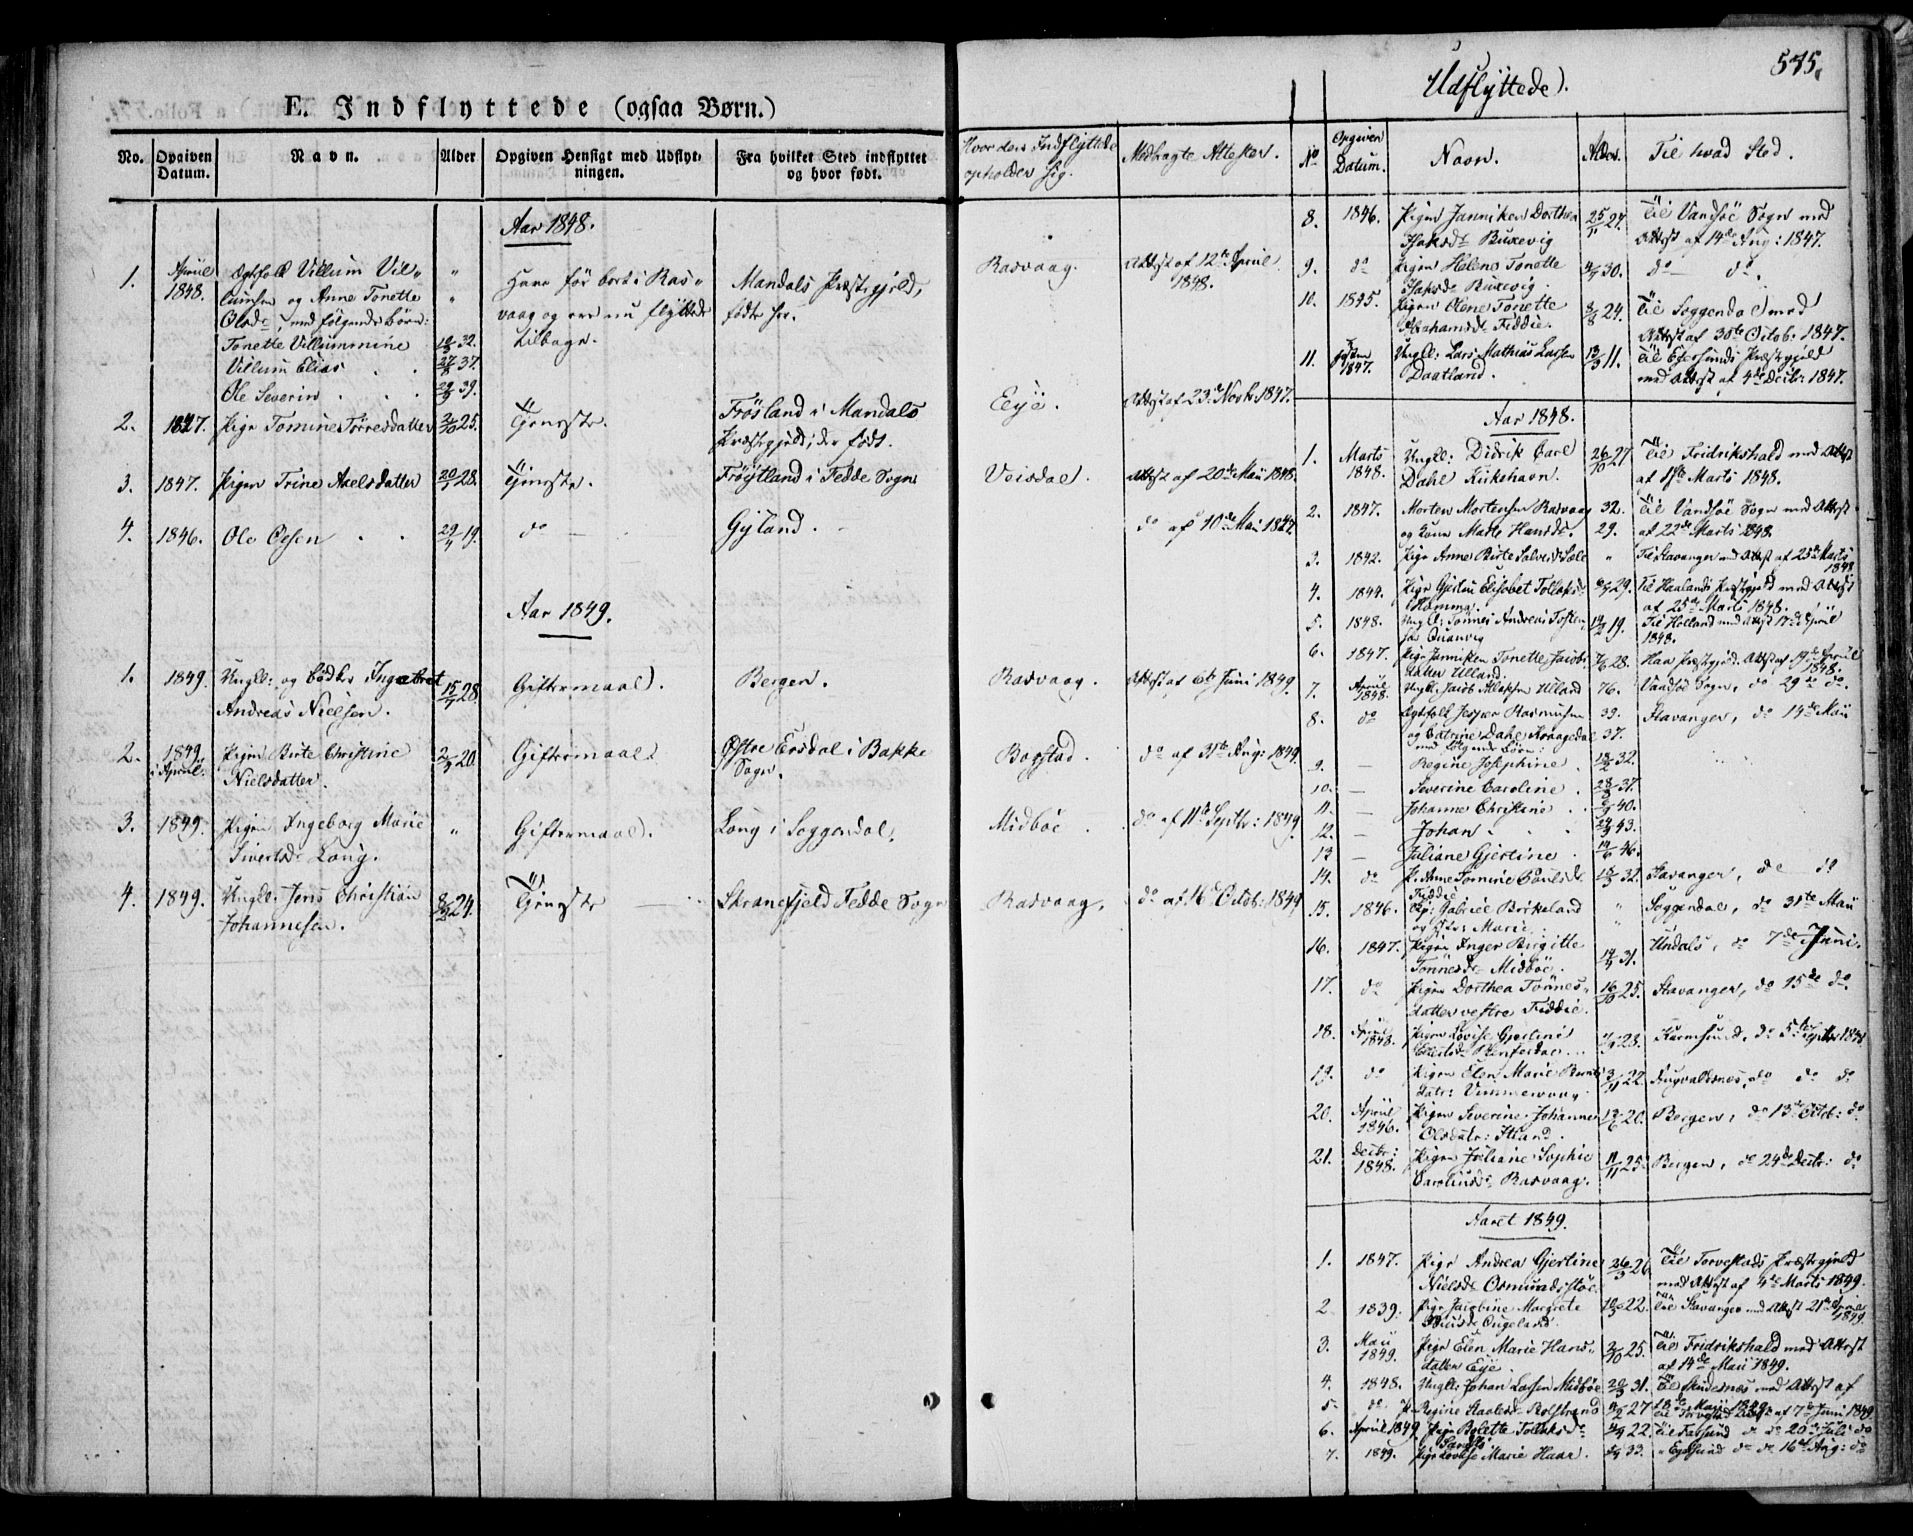 E. Indflyttede (ogsaa Børn.)
No.
Opgiven Datum.
Navn.
Alder
Opgiven Hensigt med Udflyt-
ningen.
Fra hvilket Sted indflyttet
og hvor født.
Hvor den Indflyttede
opholder sig.
Medbragte Attester.
Aar 1848.
1. April Ægtfolk Villum Vil- " Mandals Præstegjeld, Rasvaag. Attest af 12te April
1848. lumsen og Anne Tonette " vaag og ere nu flyttede fødte her. 1848.
Olsdr, med følgende Børn: tilbage.
Tonette Villummine 32.
Villum Elias . . 37.
Ole Severin . . . 39.
2. 1847. Pige Tomine Tørresdatter 2/10 25. Tjeneste. Frøsland i Mandals Eeje. Attest af 23de Novbr 1847.
Præstegjeld, der født.
3. 1847. Pigen Trine Axelsdatter 28. Tjeneste. Frøytland i Fedde Sogn Veisdal. Attest af 20de Mai 1848.
4. 1846. Ole Olesen . . 29/4 19. do — Gyland. — do af 10de Mai 1847.
Aar 1849.
1. 1849. Ungk: og Bødker Ingebret 15/7 28. Giftermaal. Bergen. Rasvaag. Attest af 6te Juni 1849.
Andreas Nielsen.
2. 1849 Pigen Birte Christine 20. Giftermaal. Østre Ersdal i Bakke Bogstad. do af 31te Aug: 1849.
i April. Nielsdatter. Sogn.
3. 1849. Pigen Ingeborg Marie " Giftermaal. Long i Soggendal. Midbøe. do af 11te Septbr: 1849
Sivertsdr Long.
4. 1849. Ungk: Jens Christian 24. Tjeneste — Skranefjeld Fedde Sogn Rasvaag. do af 16de Octob: 1849
Johannesen.
575.
Udflyttede.
No
Opgiven
Datum.
Navn.
Alder.
Til hvad Sted.
8. 1846. Pigen Janniken Dorthea 25/11 24. Til Vandsøe Sogn med
Isaksdr Buxevig Attest af 14de Aug: 1847.
9. do Pigen Helene Tonette 30. do — do.
Isaksdr Buxevig.
10. 1845. Pigen Olene Tonette 8/8 24. Til Soggendal med
Abrahamsdr Feddie. Attest af 30te Octob: 1847.
11. Ungk: Lars Mathias Larsen 11. Til Egersunds Præstegjeld
1847. Daatland. med Attest af 4de Decbr: 1847.
Aar 1848.
1. Marts Ungk: Didrik Carl 26/10 27. Til Fridrikshald med Attest
1848. Dahl Kirkehavn. af 1ste Marts 1848.
2. 1847. Morten Mortensen Rasvaag 32. Til Vandsøe Sogn med Attest
og Kone Marte Hansdr. 29. af 22de Marts 1848.
3. 1842. Pige Anne Birte Salvesdr " Til Stavanger med Attest af 25de Marts
1848
4. 1844. Pige Gjertine Elisabet Tollaksdr 29. Til Haalands Præstegjeld med Attest
af 25de Marts 1848.
5. 1848. Ungk: Tønnes Andreas 19. Til Holland med Attest 17de April
1848.
6. 1847. Pige Janniken Tonette Jacobs- 28. Haa Præstegjeld. Attest af 19de April
datter Ulland. 1848.
7. April Ungk: Jacob Ulland 76. Vandsøe Sogn, do 29de do.
1848.
8. do Ægtfolk Jesper Rasmusen 39. Stavanger, do 14de Mai
og Catrine Dahl 37.
med følgende Børn:
9. — Regine Josephine . 32.
10. — Severine Caroline . 37.
11. — Johanne Christine . 40.
12. — Johan . . . 43.
13 — Juliane Gjertine . 46.
14. do P. Anne Tomine 32. Stavanger, do do
Feddie
15. 1846. Gabriel Birkeland " Soggendal, do 31te Mai
og Marie. "
16. 1847. Pigen Inger Birgitte 31. Undals, do 7de Juni.
Tønnesdr Midbøe.
17. do Pigen Dorthea Tønnes- 16/10 25. Stavanger, do 15de do.
datter vestre Feddie.
18. April Pigen Lovise Gjertine 23. Karmsund, do 5te Septbr 1848
1848.
19. do Pigen Elen Marie Bernt 3/11 22. Augvaldsnes, do do do
datr: Vimmervaag
20. April Pigen Severine Johanne 20. Bergen, do 13de Octob: do
1846. Olsdatr:
21. Decbr: Pigen Juliane Sophie 11/11 25. Bergen, do 24de Decbr: do
1848. Rasvaag.
Aaret 1849.
1. 1847. Pige Andrea Gjertine 26/3 26 Til Torvestads Præstegjeld
Nielsdr Osmundsstøe. med Attest af 4de Marts 1849.
2 1839. Pige Jacobine Margrete 22. Til Stavanger med Attest 21de April
1849.
3. Mai Pige Elen Marie Hans- 2/10 25. Til Fridrikshald med Attest
1849. datter Eje. af 14de Mai 1849.
4. 1848. Ungk: Johan Larsen Midbøe 31. Til Skudesnes med Attest af
18de Mai 1849.
5. do. P. Regine 27 Til Torvestad Attest af 7de Juni 1849
6. April 1849 Pige Bolette Tollaksdr 22. Til do do 20de Juli do
7. 1849. Pige Lovise Marie Haar. 33. " Egersund do do 16de Aug: do